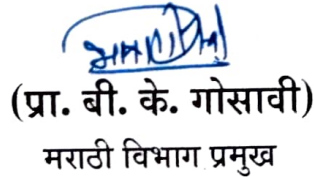 (प्रा. बी. के. गोसावी)
मराठी विभाग प्रमुख